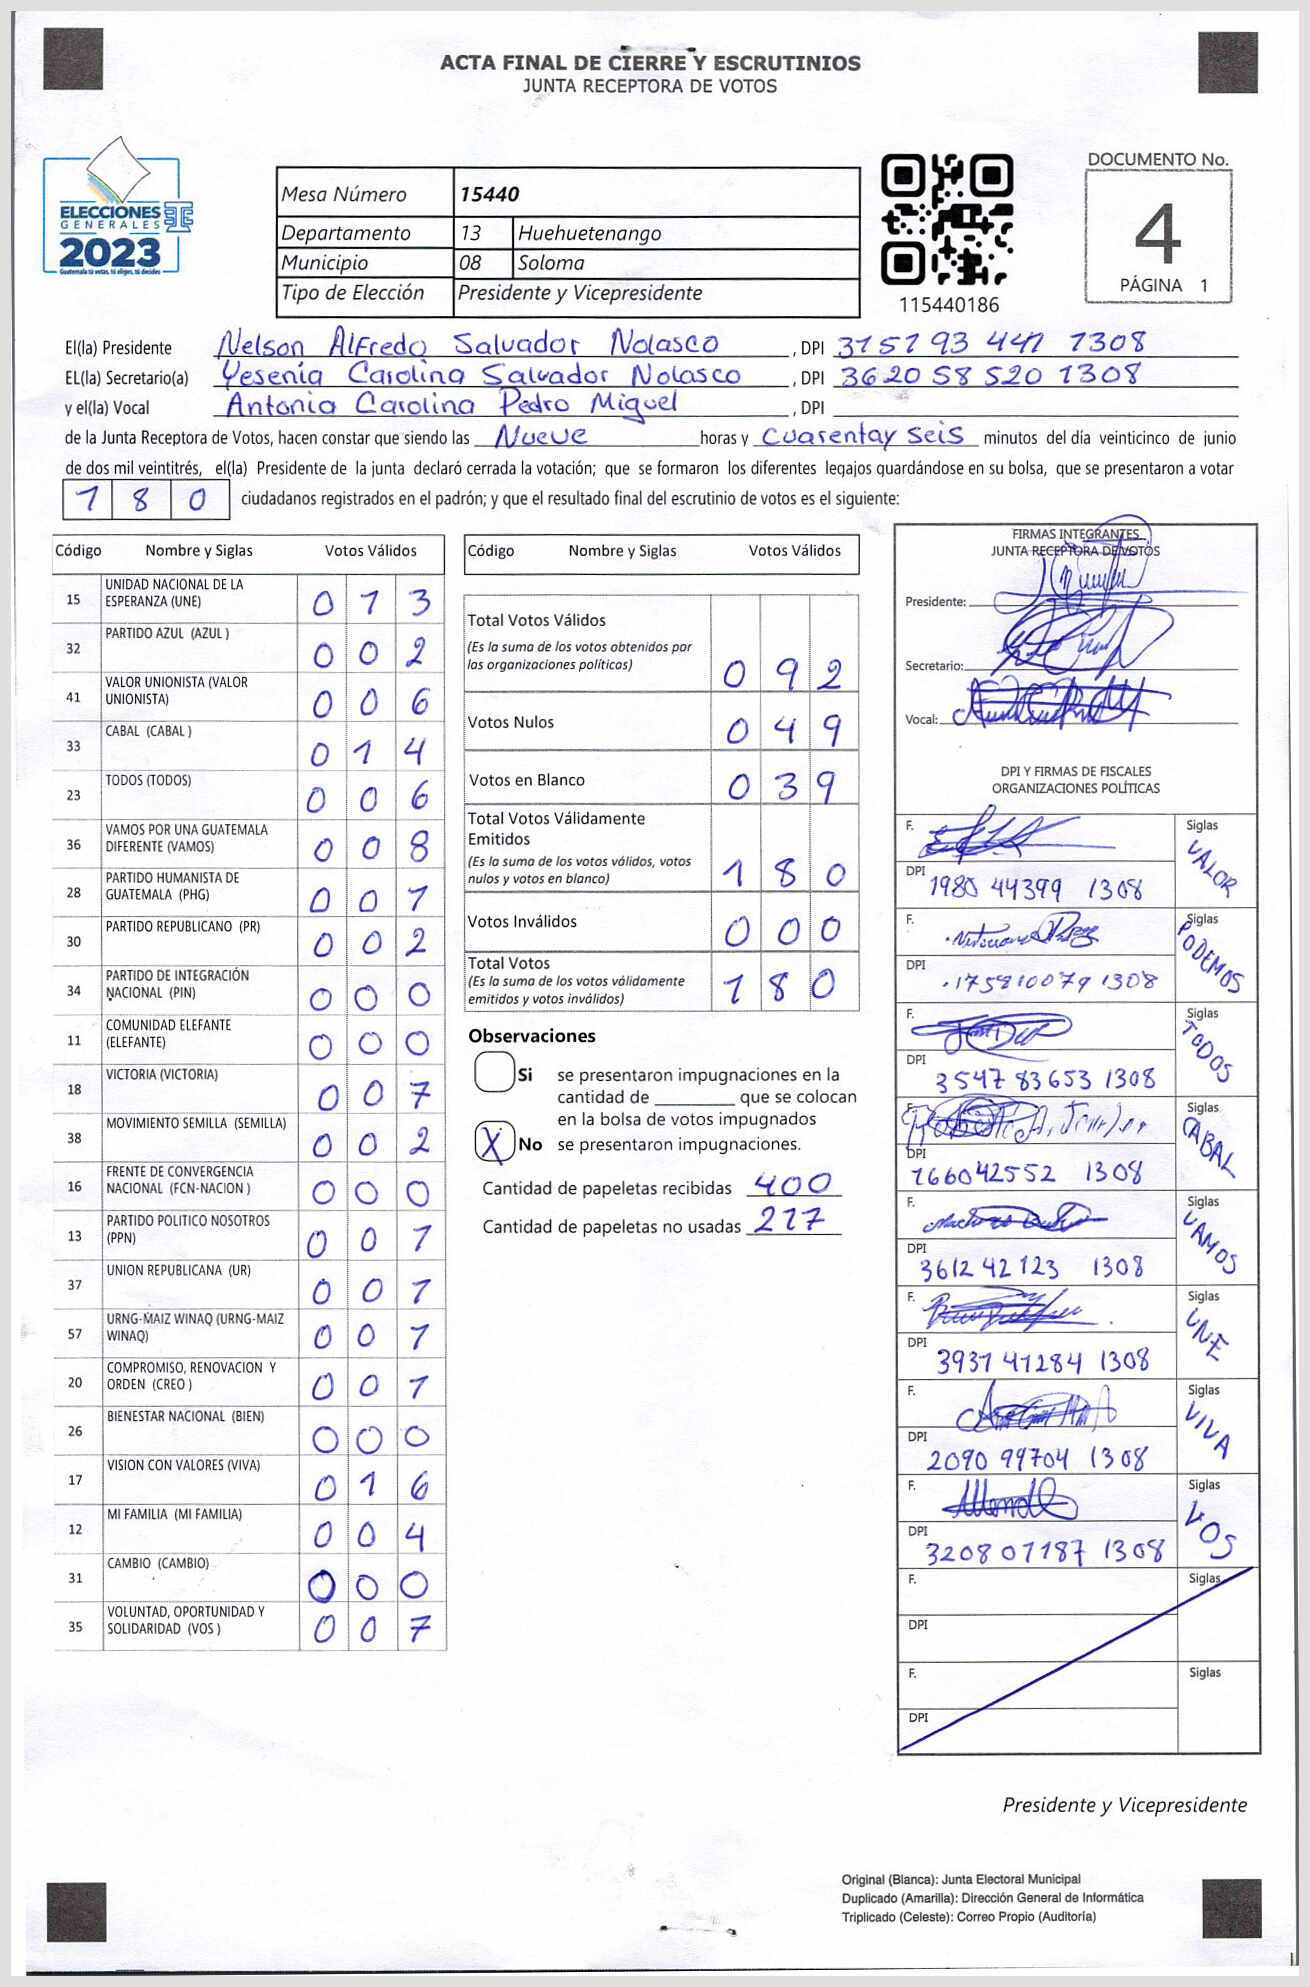 ACTA FINAL DE CIERRE Y ESCRUTINIOS
JUNTA RECEPTORA DE VOTOS
ELECCIONES
GENERALES
2023
Guatemala tú votas, tú eliges, tú decides
Mesa Número 15440
Departamento 13 Huehuetenango
Municipio 08 Soloma
Tipo de Elección Presidente y Vicepresidente
115440186
DOCUMENTO No.
4
PÁGINA 1
El(la) Presidente Nelson Alfredo Salvador Nolasco , DPI 3151 93 441 1308
EL(la) Secretario(a) Yesenia Carolina Salvador Nolasco , DPI 3620 58 520 1308
y el(la) Vocal Antonia Carolina Pedro Miguel , DPI
de la Junta Receptora de Votos, hacen constar que siendo las Nueve horas y Cuarentay seis minutos del día veinticinco de junio
de dos mil veintitrés, el(la) Presidente de la junta declaró cerrada la votación; que se formaron los diferentes legajos guardándose en su bolsa, que se presentaron a votar
180 ciudadanos registrados en el padrón; y que el resultado final del escrutinio de votos es el siguiente:
Código Nombre y Siglas Votos Válidos
15 UNIDAD NACIONAL DE LA ESPERANZA (UNE) 013
32 PARTIDO AZUL (AZUL ) 002
41 VALOR UNIONISTA (VALOR UNIONISTA) 006
33 CABAL (CABAL ) 014
23 TODOS (TODOS) 006
36 VAMOS POR UNA GUATEMALA DIFERENTE (VAMOS) 008
28 PARTIDO HUMANISTA DE GUATEMALA (PHG) 001
30 PARTIDO REPUBLICANO (PR) 002
34 PARTIDO DE INTEGRACIÓN NACIONAL (PIN) 000
11 COMUNIDAD ELEFANTE (ELEFANTE) 000
18 VICTORIA (VICTORIA) 007
38 MOVIMIENTO SEMILLA (SEMILLA) 002
16 FRENTE DE CONVERGENCIA NACIONAL (FCN-NACION ) 000
13 PARTIDO POLITICO NOSOTROS (PPN) 001
37 UNION REPUBLICANA (UR) 001
57 URNG-MAIZ WINAQ (URNG-MAIZ WINAQ) 001
20 COMPROMISO, RENOVACION Y ORDEN (CREO ) 001
26 BIENESTAR NACIONAL (BIEN) 000
17 VISION CON VALORES (VIVA) 016
12 MI FAMILIA (MI FAMILIA) 004
31 CAMBIO (CAMBIO) 000
35 VOLUNTAD, OPORTUNIDAD Y SOLIDARIDAD (VOS ) 007
Código Nombre y Siglas Votos Válidos
Total Votos Válidos
(Es la suma de los votos obtenidos por
las organizaciones políticas) 092
Votos Nulos 049
Votos en Blanco 039
Total Votos Válidamente
Emitidos
(Es la suma de los votos válidos, votos
nulos y votos en blanco) 180
Votos Inválidos 000
Total Votos
(Es la suma de los votos válidamente
emitidos y votos inválidos) 180
Observaciones
Si se presentaron impugnaciones en la
cantidad de ________ que se colocan
en la bolsa de votos impugnados
X No se presentaron impugnaciones.
Cantidad de papeletas recibidas 400
Cantidad de papeletas no usadas 217
FIRMAS INTEGRANTES
JUNTA RECEPTORA DE VOTOS
Presidente:
Secretario:
Vocal:
DPI Y FIRMAS DE FISCALES
ORGANIZACIONES POLÍTICAS
F. Siglas VALOR
DPI 1980 44399 1308
F. Siglas PODEMOS
DPI 175910079 1308
F. Siglas TODOS
DPI 3547 83653 1308
F. Siglas CABAL
DPI 166042552 1308
F. Siglas VAMOS
DPI 3612 42 123 1308
F. Siglas UNE
DPI 3931 41284 1308
F. Siglas VIVA
DPI 2090 99704 1308
F. Siglas VOS
DPI 3208 01187 1308
F. Siglas
DPI
F. Siglas
DPI
Presidente y Vicepresidente
Original (Blanca): Junta Electoral Municipal
Duplicado (Amarilla): Dirección General de Informática
Triplicado (Celeste): Correo Propio (Auditoría)